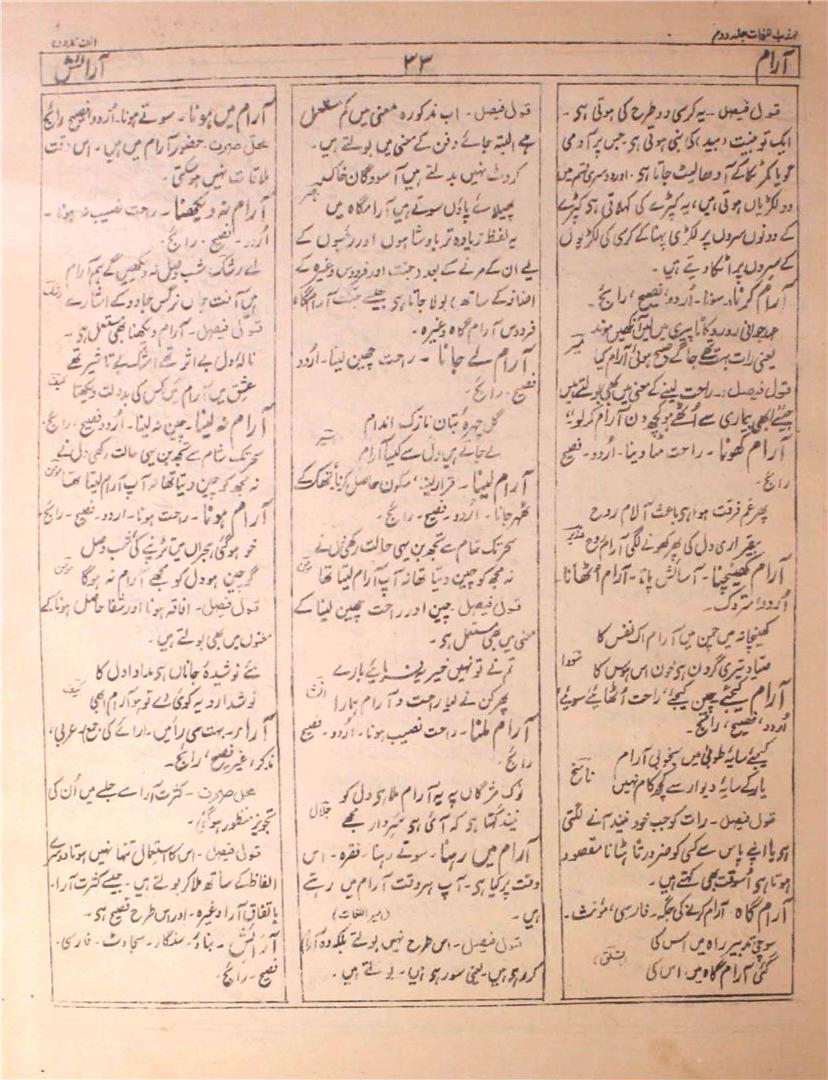 مہذب اللغات جلد دوم
الف ممدودہ
آرام
۳۳
آرائش
قول فیصل۔ یہ کرسی دو طرح کی ہوتی ہی۔
ایک تو بینت (بید) کی بنی ہوتی ہی جس پر آدمی
گویا کمر ٹکا کے آدھا لیٹ جاتا ہی۔ اور دوسری قسم میں
دو لکڑیاں ہوتی ہیں، یہ کپڑے کی کہلاتی ہی کپڑے
کے دونوں سروں پر لکڑی پہنا کے کرسی کی لکڑیوں
کے سروں پر اٹکا دیتے ہیں۔
آرام کرنا۔ سونا۔ اُردو، فصیح، رائج۔
عہد جوانی رو رو کاٹا پیری میں لیں آنکھیں موند
یعنی رات بہت تھے جاگے صبح ہوئی آرام کیا
میر
قول فیصل:۔ راحت لینے کے معنی میں بھی بولتے ہیں
جیسے ابھی بیماری سے اُٹھے ہو کچھ دن آرام کر لو۔
آرام کھونا۔ راحت مٹا دینا۔ اُردو۔ فصیح
رائج۔
پھر غم فرقت ہوا ہی باعث آلام روح
بیقراری دل کی پھر کھونے لگی آرام روح
آرام کھینچنا۔ آسائش پانا۔ آرام اُٹھانا۔
اُردو، متروک۔
کھینچا نہ میں چمن میں آرام اک نفس کا
صیاد تیری گردن ہی خون اس ہوس کا
سودا
آرام کیجئے چین کیجئے، راحت اُٹھائیے سوئیے
اُردو، فصیح، رائج۔
کیجئے سایۂ طوبیٰ میں بخوبی آرام
یار کے سایۂ دیوار سے کچھ کام نہیں
ناسخ
قول فیصل۔ رات کو جب خود نیند آنے لگتی
ہی یا اپنے پاس سے کسی کو ضرورتاً ہٹانا مقصود
ہوتا ہی اُسوقت بھی کہتے ہیں۔
آرام گاہ۔ آرام کرنے کی جگہ۔ فارسی، مؤنث۔
سوچی تدبیر راہ میں اس کی
گئی آرام گاہ میں اس کی
(قلق)
قول فیصل۔ اب مذکورہ معنی میں کم مستعمل
ہے البتہ جائے دفن کے معنی میں بولتے ہیں۔
کروٹ نہیں بدلتے ہیں آسودگان خاک
پھیلائے پاؤں سوتے ہیں آرامگاہ میں
یہ لفظ زیادہ تر بادشاہوں اور رئیسوں کے
لیے ان کے مرنے کے بعد (جنت اور فردوس وغیرہ کے
اضافہ کے ساتھ) بولا جاتا ہی جیسے جنت آرامگاہ
فردوس آرام گاہ وغیرہ۔
آرام لے جانا۔ راحت چھین لینا۔ اُردو
فصیح۔ رائج۔
گل چہرہ بتان نازک اندام
لے جاتے ہیں دل سے کیا آرام
آرام لینا۔ قرار لینا، سکون حاصل کرنا، تھک کے
ٹھہر جانا۔ اُردو۔ فصیح۔ رائج۔
سحر تک شام سے تجھ بن یہی حالت رکھی دل نے
نہ مجھ کو چین دیتا تھا نہ آپ آرام لیتا تھا
مومن
قول فیصل۔ چین اور راحت چھین لینا کے
معنی میں بھی مستعمل ہی۔
تم نے تو نہیں خیر یہ فرمائیے بارے
پھر کن نے لیا راحت و آرام ہمارا
انشا
آرام ملنا۔ راحت نصیب ہونا۔ اُردو۔ فصیح
رائج۔
نوک مژگاں پہ یہ آرام ملا ہی دل کو
نیند کہتا ہی کہ آئی ہی سرِ دار مجھے
جلال
آرام میں رہنا۔ سوتے رہنا۔ فقرہ۔ اس
وقت پر کیا ہی۔ آپ ہر وقت آرام میں رہتے
ہیں۔
(امیر اللغات)
قول فیصل۔ اس طرح نہیں بولتے بلکہ وہ آرام
کر رہے ہیں۔ یعنی سو رہے ہیں۔ بولتے ہیں۔
آرام میں ہونا۔ سوتے ہونا۔ اُردو، فصیح رائج
محل صرف۔ حضور آرام میں ہیں۔ اس وقت
ملاقات نہیں ہو سکتی۔
آرام نہ دیکھنا۔ راحت نصیب نہ ہونا۔
اُردو۔ فصیح۔ رائج۔
اے رشک شب وصل نہ دیکھیں گے ہم آرام
ہیں آفت جاں نرگس جادو کے اشارے
رشک
قول فیصل۔ آرام دیکھنا بھی مستعمل ہی۔
نالۂ دل بے اثر تھے اشک بے تاثیر تھے
عشق میں آرام میں کس کی بدولت دیکھتا
آرام نہ لینا۔ چین نہ لینا۔ اُردو، فصیح، رائج۔
سحر تک شام سے تجھ بن یہی حالت رکھی دل نے
نہ مجھ کو چین دیتا تھا نہ آپ آرام لیتا تھا
مومن
آرام ہونا۔ راحت ہونا۔ اُردو۔ فصیح۔ رائج۔
خو ہو گئی ہجراں میں تڑپنے کی شب وصل
گر چین ہو دل کو مجھے آرام نہ ہوگا
مومن
قول فیصل۔ افاقہ ہونا اور شفا حاصل ہونا کے
معنوں میں بھی بولتے ہیں۔
مئے نوشیدۂ جاناں ہی مداوا دل کا
نوشدارو یہ کوئی دے تو ہو آرام ابھی
آرا۔ بہت سی رائیں۔ (رائے کی جمع) عربی،
مذکر، غیر فصیح، رائج۔
محل صرف۔ کثرت آرا سے جلسے میں اُن کی
تجویز منظور ہو گئی۔
قول فیصل۔ اس کا استعمال تنہا نہیں ہوتا دوسرے
الفاظ کے ساتھ ملا کر بولتے ہیں۔ جیسے کثرت آرا۔
یا اتفاق آرا وغیرہ۔ اور اس طرح فصیح ہی۔
آرائش۔ بناؤ۔ سنگار۔ سجاوٹ۔ فارسی۔
فصیح۔ رائج۔